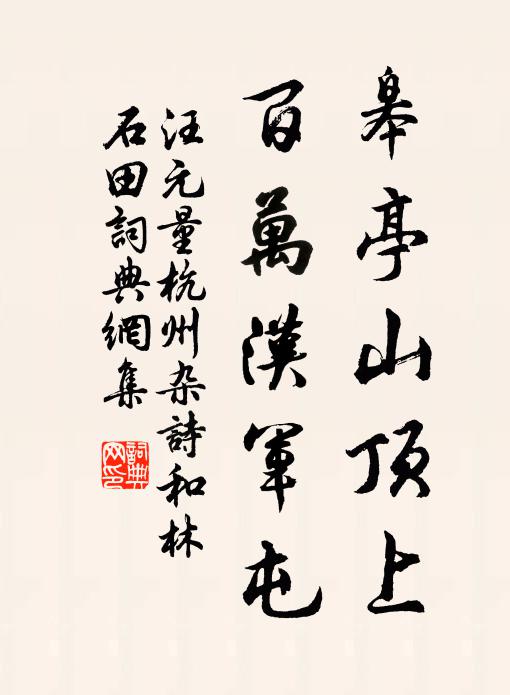 皋亭山顶上
百萬漢軍屯
汪元量杭州杂詩和林
石田詞典網集
詞典
网印